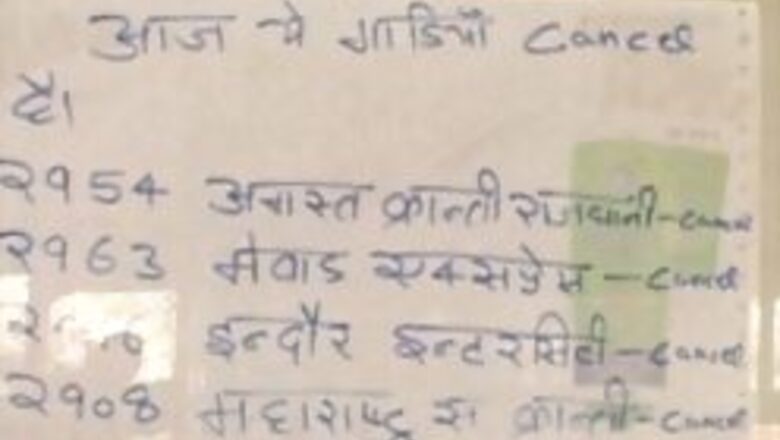 आज ये गाडियाँ Cancel
है।
२९54 अगस्त क्रान्ती राजधानी-Cancel
२९63 मेवाड एक्सप्रेस - Cancel
इन्दौर इन्टरसिटी-Cancel
२९08 महाराष्ट्र स क्रान्ती-Cancel